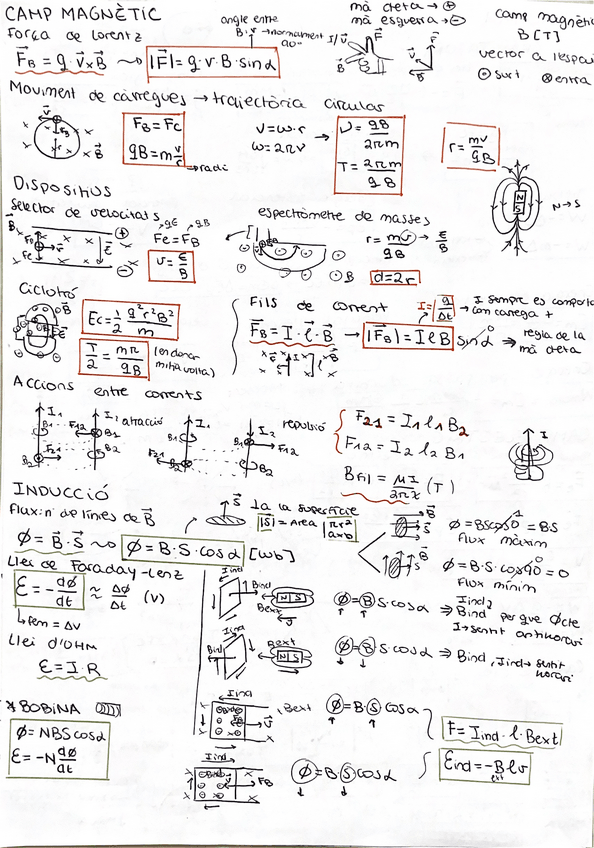 CAMP MAGNÈTIC
Força de Lorentz
angle entre
B i v → normalment
90°
mà dreta → ⊕
mà esquerra → ⊖
camp magnètic
B [T]
vector a l'espai
⊙ surt ⊗ entra
F_B = q · v × B ⇝ |F| = q · v · B · sin α
I/v F B
Moviment de càrregues → trajectòria circular
F_B = F_c
qB = m v/r → radi
v = ω · r
ω = 2πν
ν = qB/2πm
T = 2πm/qB
r = mv/qB
N → S
DISPOSITIUS
Selector de velocitats
Fe = F_B
qE qB
v = E/B
espectròmetre de masses
r = mv/qB → E/B
d = 2r
Ciclotró
Ec = 1/2 q²r²B²/m
T/2 = mπ/qB (en donar mitja volta)
Fils de corrent
I = q/Δt → I sempre es comporta com càrrega +
F_B = I · l · B → |F_B| = I l B sin α ⇒ regla de la mà dreta
Accions entre corrents
I₁ I₂ atracció
F₁₂ B₁ F₂₁ B₂
I₁ repulsió I₂
B₁ F₁₂ B₂
F₂₁ = I₁ l₁ B₂
F₁₂ = I₂ l₂ B₁
B_fil = μI/2πr (T)
INDUCCIÓ
Flux: n de línies de B
S ⊥ a la superfície
|S| = Area πr² a×b
ϕ = BS cos 0 = B·S
flux màxim
ϕ = B · S ⇝ ϕ = B · S · cos α [Wb]
ϕ = B·S·cos 90° = 0
Flux mínim
Llei de Faraday-Lenz
ε = - dϕ/dt ≈ Δϕ/dt (V)
fem = ΔV
Llei d'OHM
ε = I · R
Iind
Bind
Bext
N S
ϕ = B S · cos α ⇒ Iind
Bind perquè ϕ cte
I → sentit antihorari
Bext
Bind
N S
ϕ = B S cos α ⇒ Bind, Iind → sentit horari
* BOBINA
ϕ = NBS cos α
ε = -N dϕ/dt
Iind
Bext
ϕ = B S cos α
F = Iind · l · Bext
Iind
F_B
ϕ = B S cos α
εind = -B ext l v